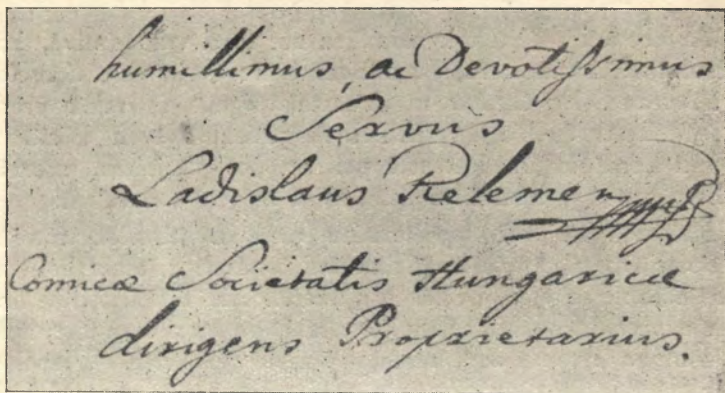 humillimus, ac Devotissimus
Servus
Ladislaus Kelemen
Comicæ Societatis Hungaricæ
dirigens Proprietarius.